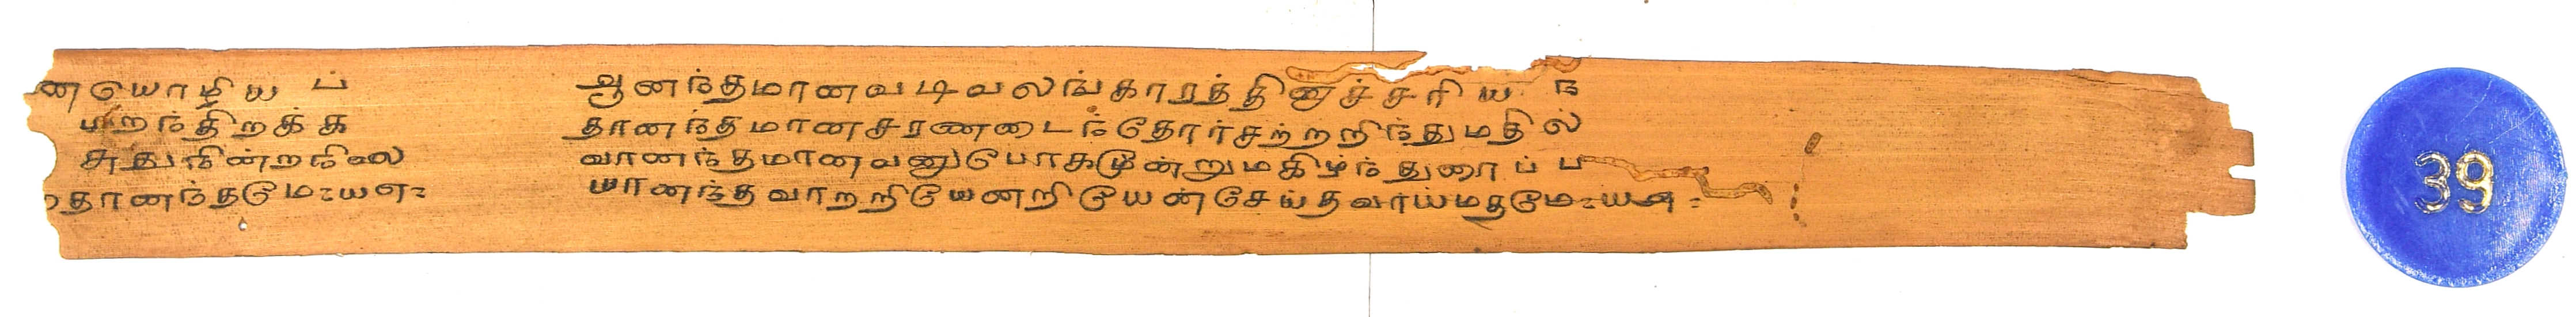 னயொழிய ப் ஆனந்தமானவடிவலங்காரத்தினுச்சரிய ந்
மறந்திறக்க தானந்தமானசரணடைந்தோர்சற்றறிந்துமதில்
சுதுநின்றநிலை வானந்தமானவனுபோகமூன்றுமகிழ்ந்துரைப் ப
தானந்தமேயஎ யானந்தவாறறியேனறியேன்சேய்தவாய்மதமேயஎ
39